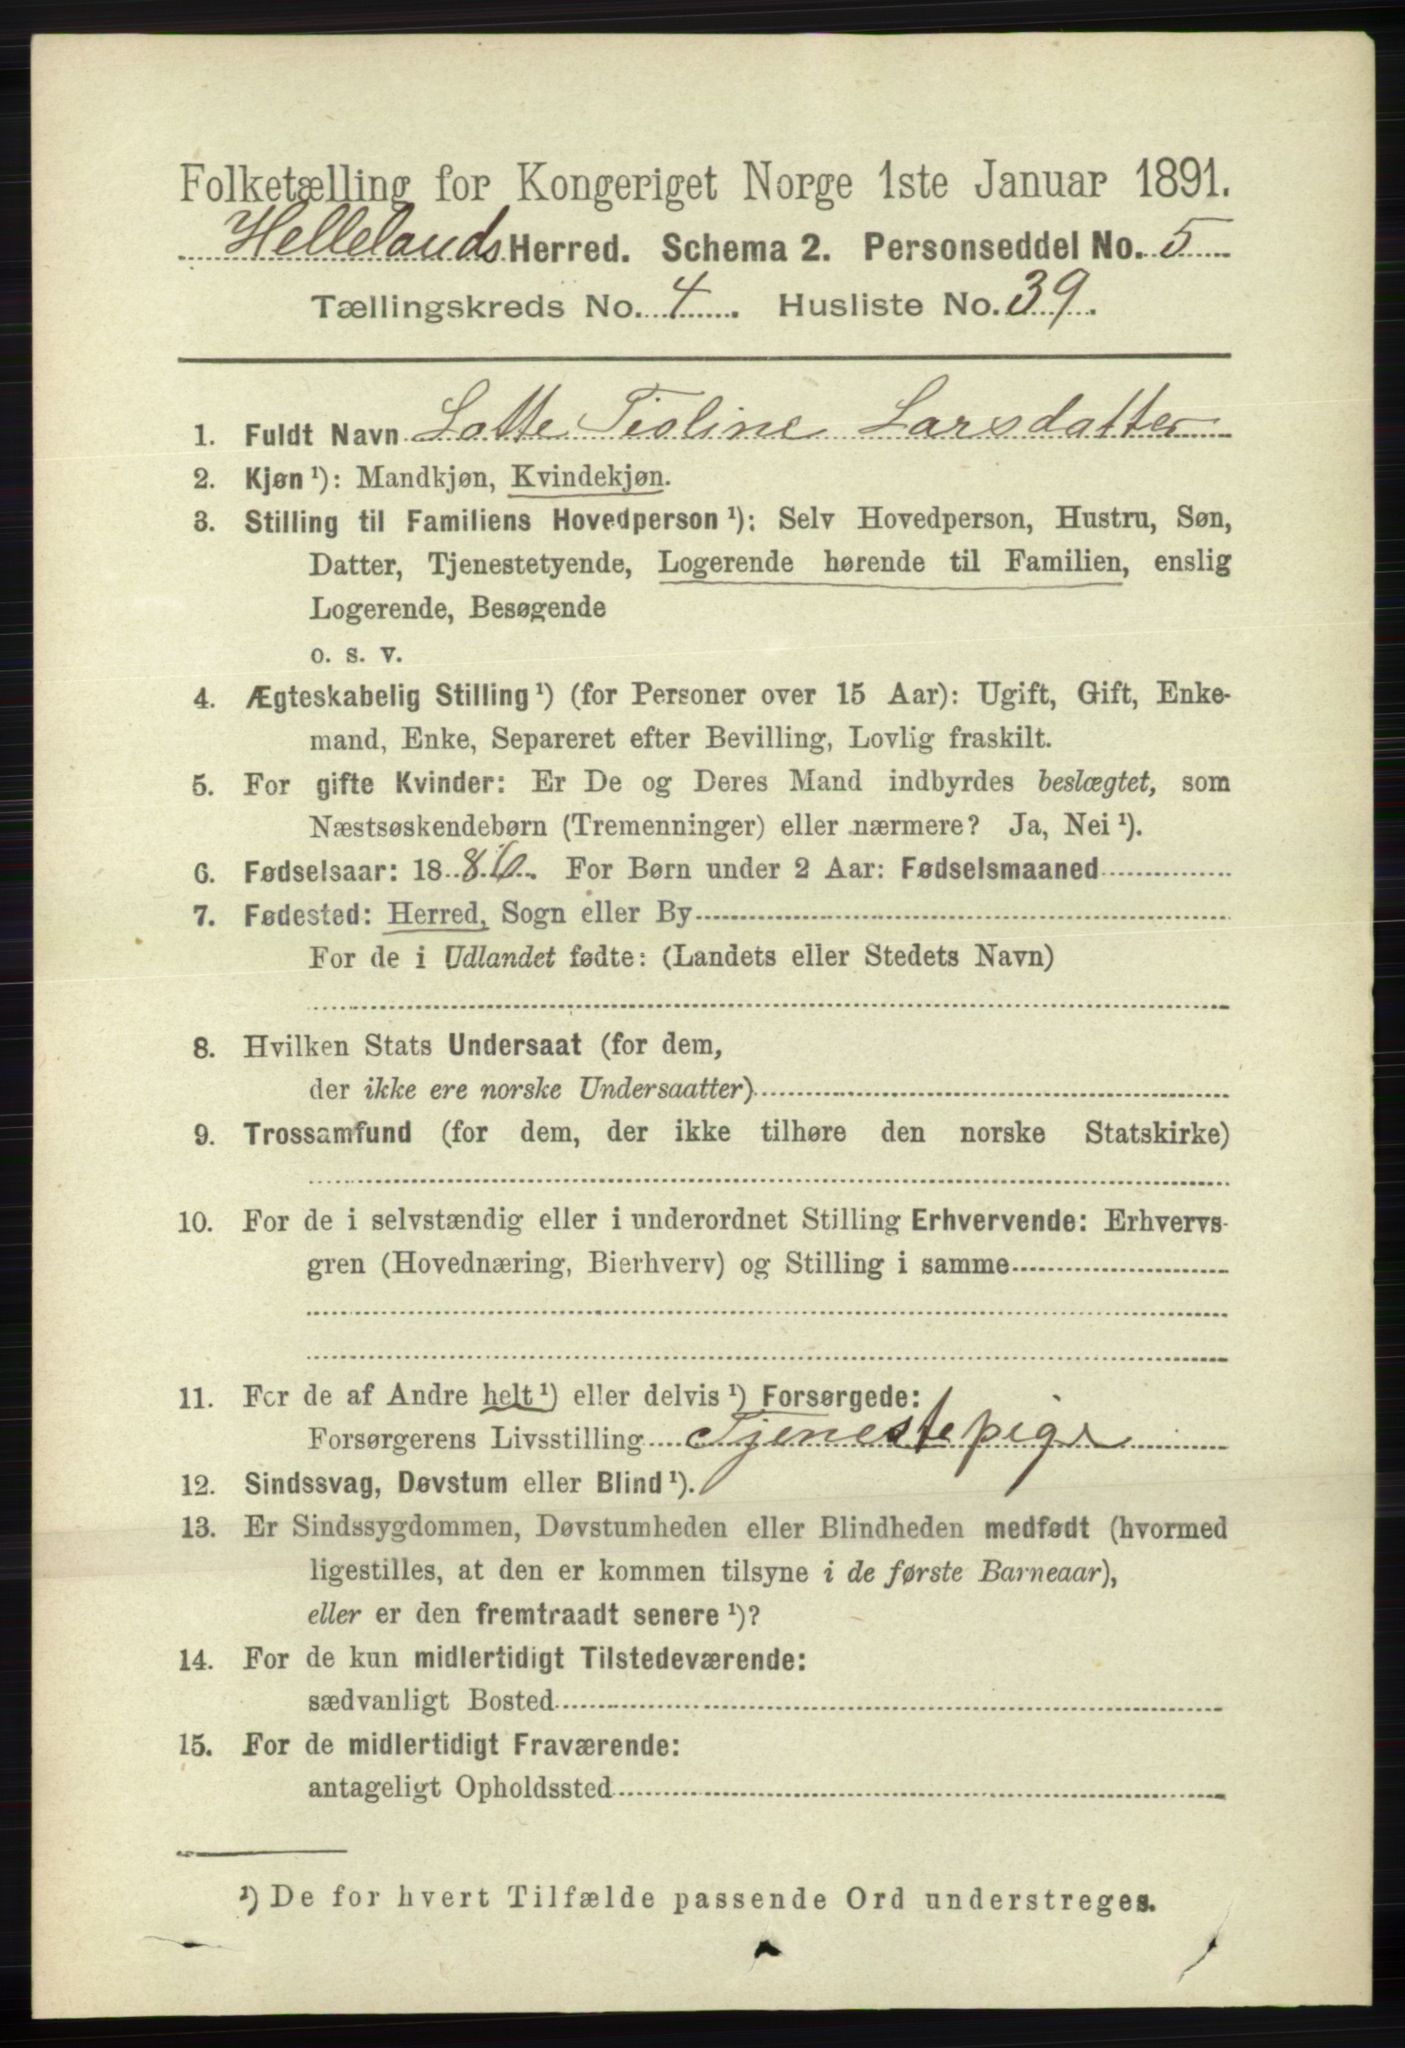 Folketælling for Kongeriget Norge 1ste Januar 1891.
Hellelands Herred. Schema 2. Personseddel No. 5
Tællingskreds No. 4. Husliste No. 39.
1. Fuldt Navn Lotte Tioline Larsdatter
2. Kjøn ¹): Mandkjøn, Kvindekjøn.
3. Stilling til Familiens Hovedperson ¹): Selv Hovedperson, Hustru, Søn,
Datter, Tjenestetyende, Logerende hørende til Familien, enslig
Logerende, Besøgende
o. s. v.
4. Ægteskabelig Stilling ¹) (for Personer over 15 Aar): Ugift, Gift, Enke-
mand, Enke, Separeret efter Bevilling, Lovlig fraskilt.
5. For gifte Kvinder: Er De og Deres Mand indbyrdes beslægtet, som
Næstsøskendebørn (Tremenninger) eller nærmere? Ja, Nei ¹).
6. Fødselsaar: 1886. For Børn under 2 Aar: Fødselsmaaned
7. Fødested: Herred, Sogn eller By
For de i Udlandet fødte: (Landets eller Stedets Navn)
8. Hvilken Stats Undersaat (for dem,
der ikke ere norske Undersaatter)
9. Trossamfund (for dem, der ikke tilhøre den norske Statskirke)
10. For de i selvstændig eller i underordnet Stilling Erhvervende: Erhvervs-
gren (Hovednæring, Bierhverv) og Stilling i samme
11. For de af Andre helt ¹) eller delvis ¹) Forsørgede:
Forsørgerens Livsstilling Tjenestepige
12. Sindssvag, Døvstum eller Blind ¹).
13. Er Sindssygdommen, Døvstumheden eller Blindheden medfødt (hvormed
ligestilles, at den er kommen tilsyne i de første Barneaar),
eller er den fremtraadt senere ¹)?
14. For de kun midlertidigt Tilstedeværende:
sædvanligt Bosted
15. For de midlertidigt Fraværende:
antageligt Opholdssted
¹) De for hvert Tilfælde passende Ord understreges.